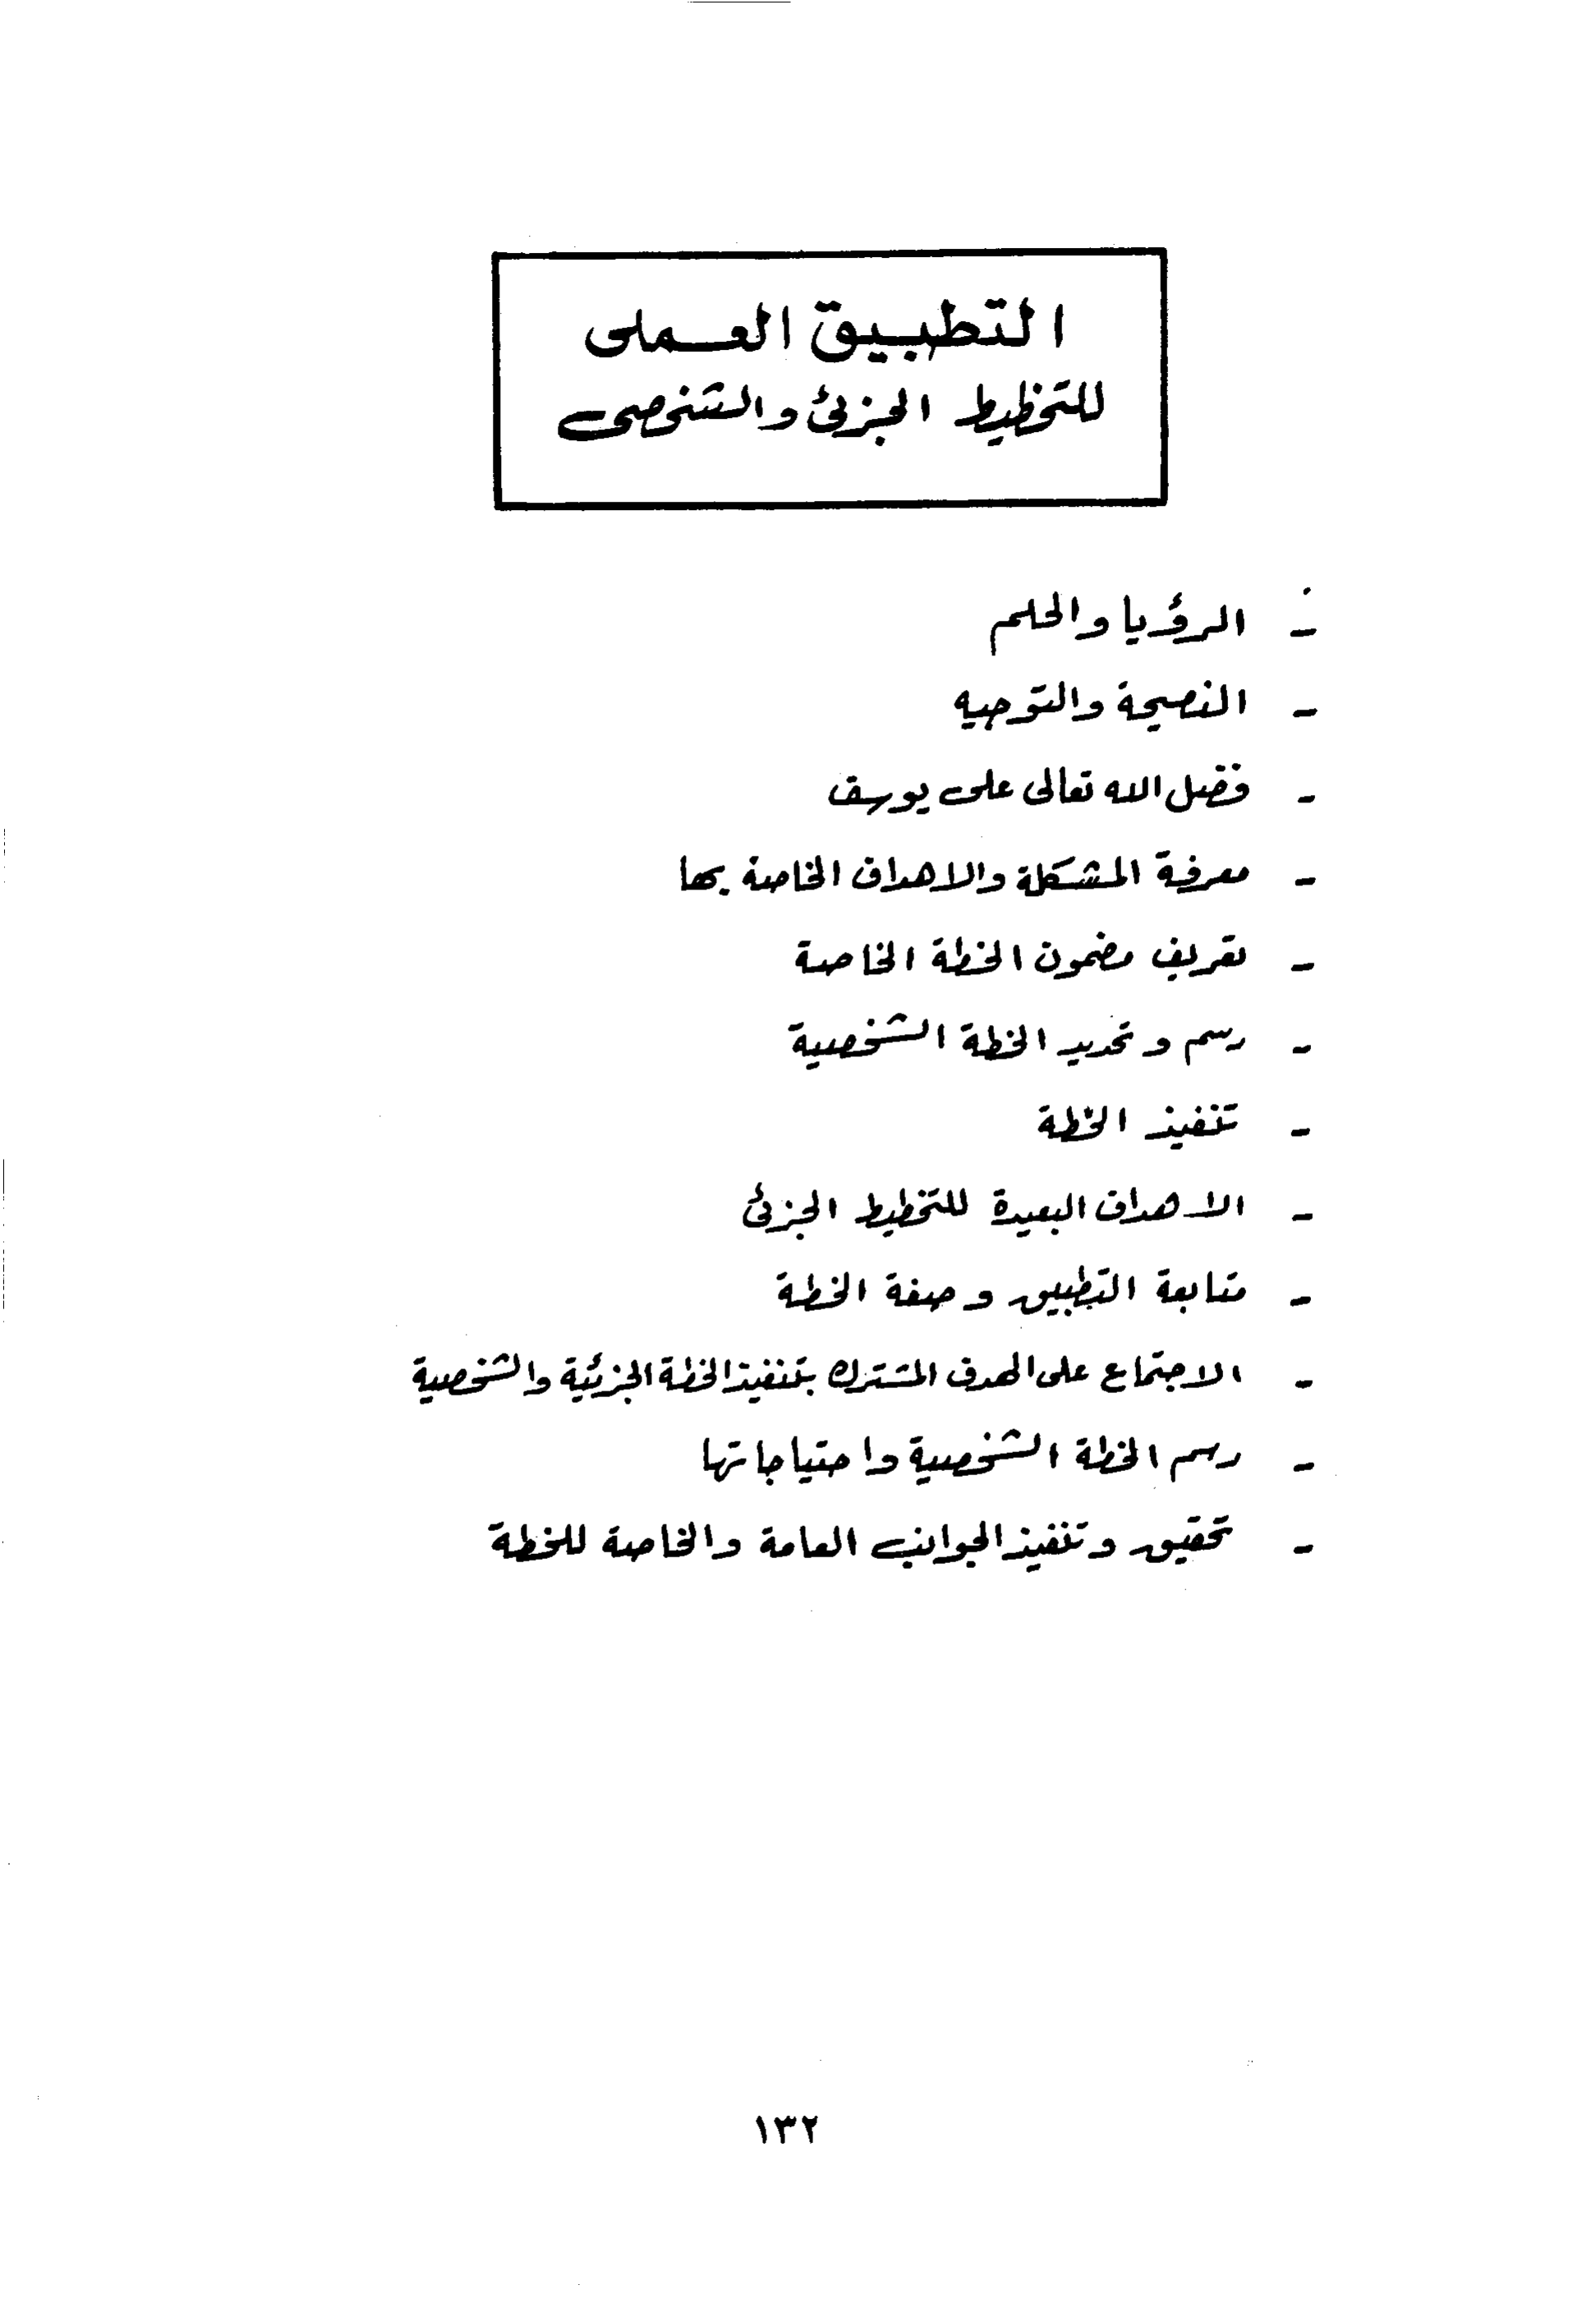 التطبيق العملى
للتخطيط الجزئ والشخصى
- الرؤيا والحلم
- النصيحة والتوجيه
- فضل الله تعالى على يوسف
- معرفة المشكلة والاهداف الخاصة بها
- تعريف مضمون الخطة الخاصة
- رسم وتحديد الخطة الشخصية
- تنفيذ الخطة
- الاهداف البعيدة للتخطيط الجزئ
- متابعة التطبيق وصفة الخطة
- الاجتماع على الهدف المشترك بتنفيذ الخطة الجزئية والشخصية
- رسم الخطة الشخصية واحتياجاتها
- تحقيق وتنفيذ الجوانب العامة والخاصة للخطة
١٣٢